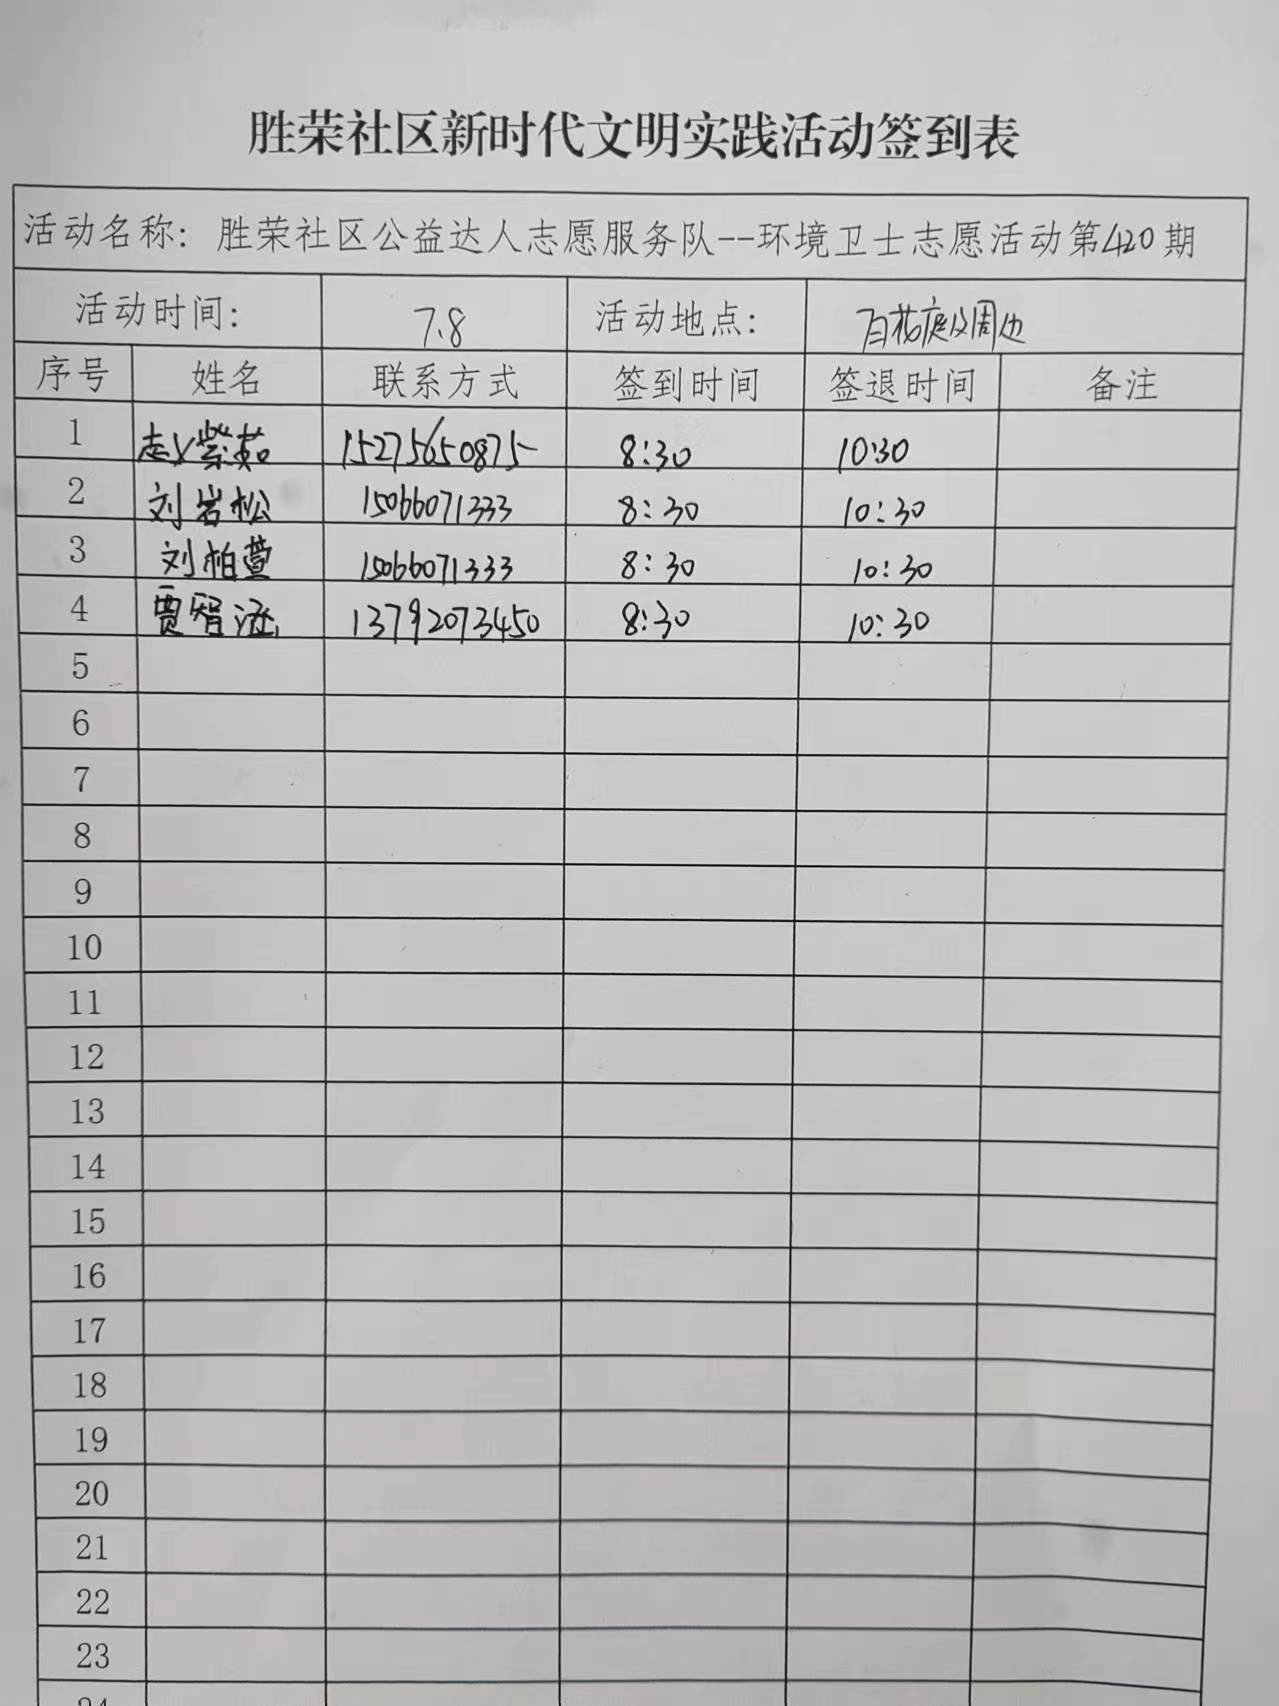 胜荣社区新时代文明实践活动签到表
活动名称：胜荣社区公益达人志愿服务队--环境卫士志愿活动第420期
活动时间： 7.8 活动地点： 百花庭及周边
序号 姓名 联系方式 签到时间 签退时间 备注
1 紫茹 15275650875 8:30 10:30
2 刘岩松 15066071333 8:30 10:30
3 刘柏萱 15066071333 8:30 10:30
4 贾智涵 13792073450 8:30 10:30
5
6
7
8
9
10
11
12
13
14
15
16
17
18
19
20
21
22
23
24